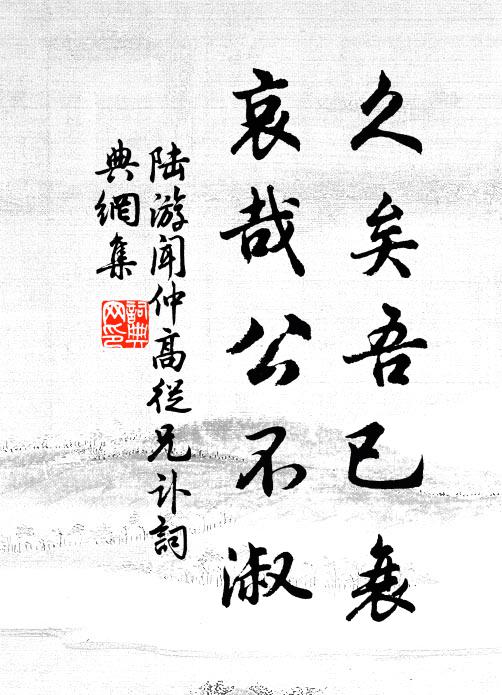 久矣吾已衰
哀哉公不淑
陆游闻仲高從兄讣詞
典網集
詞典
网印